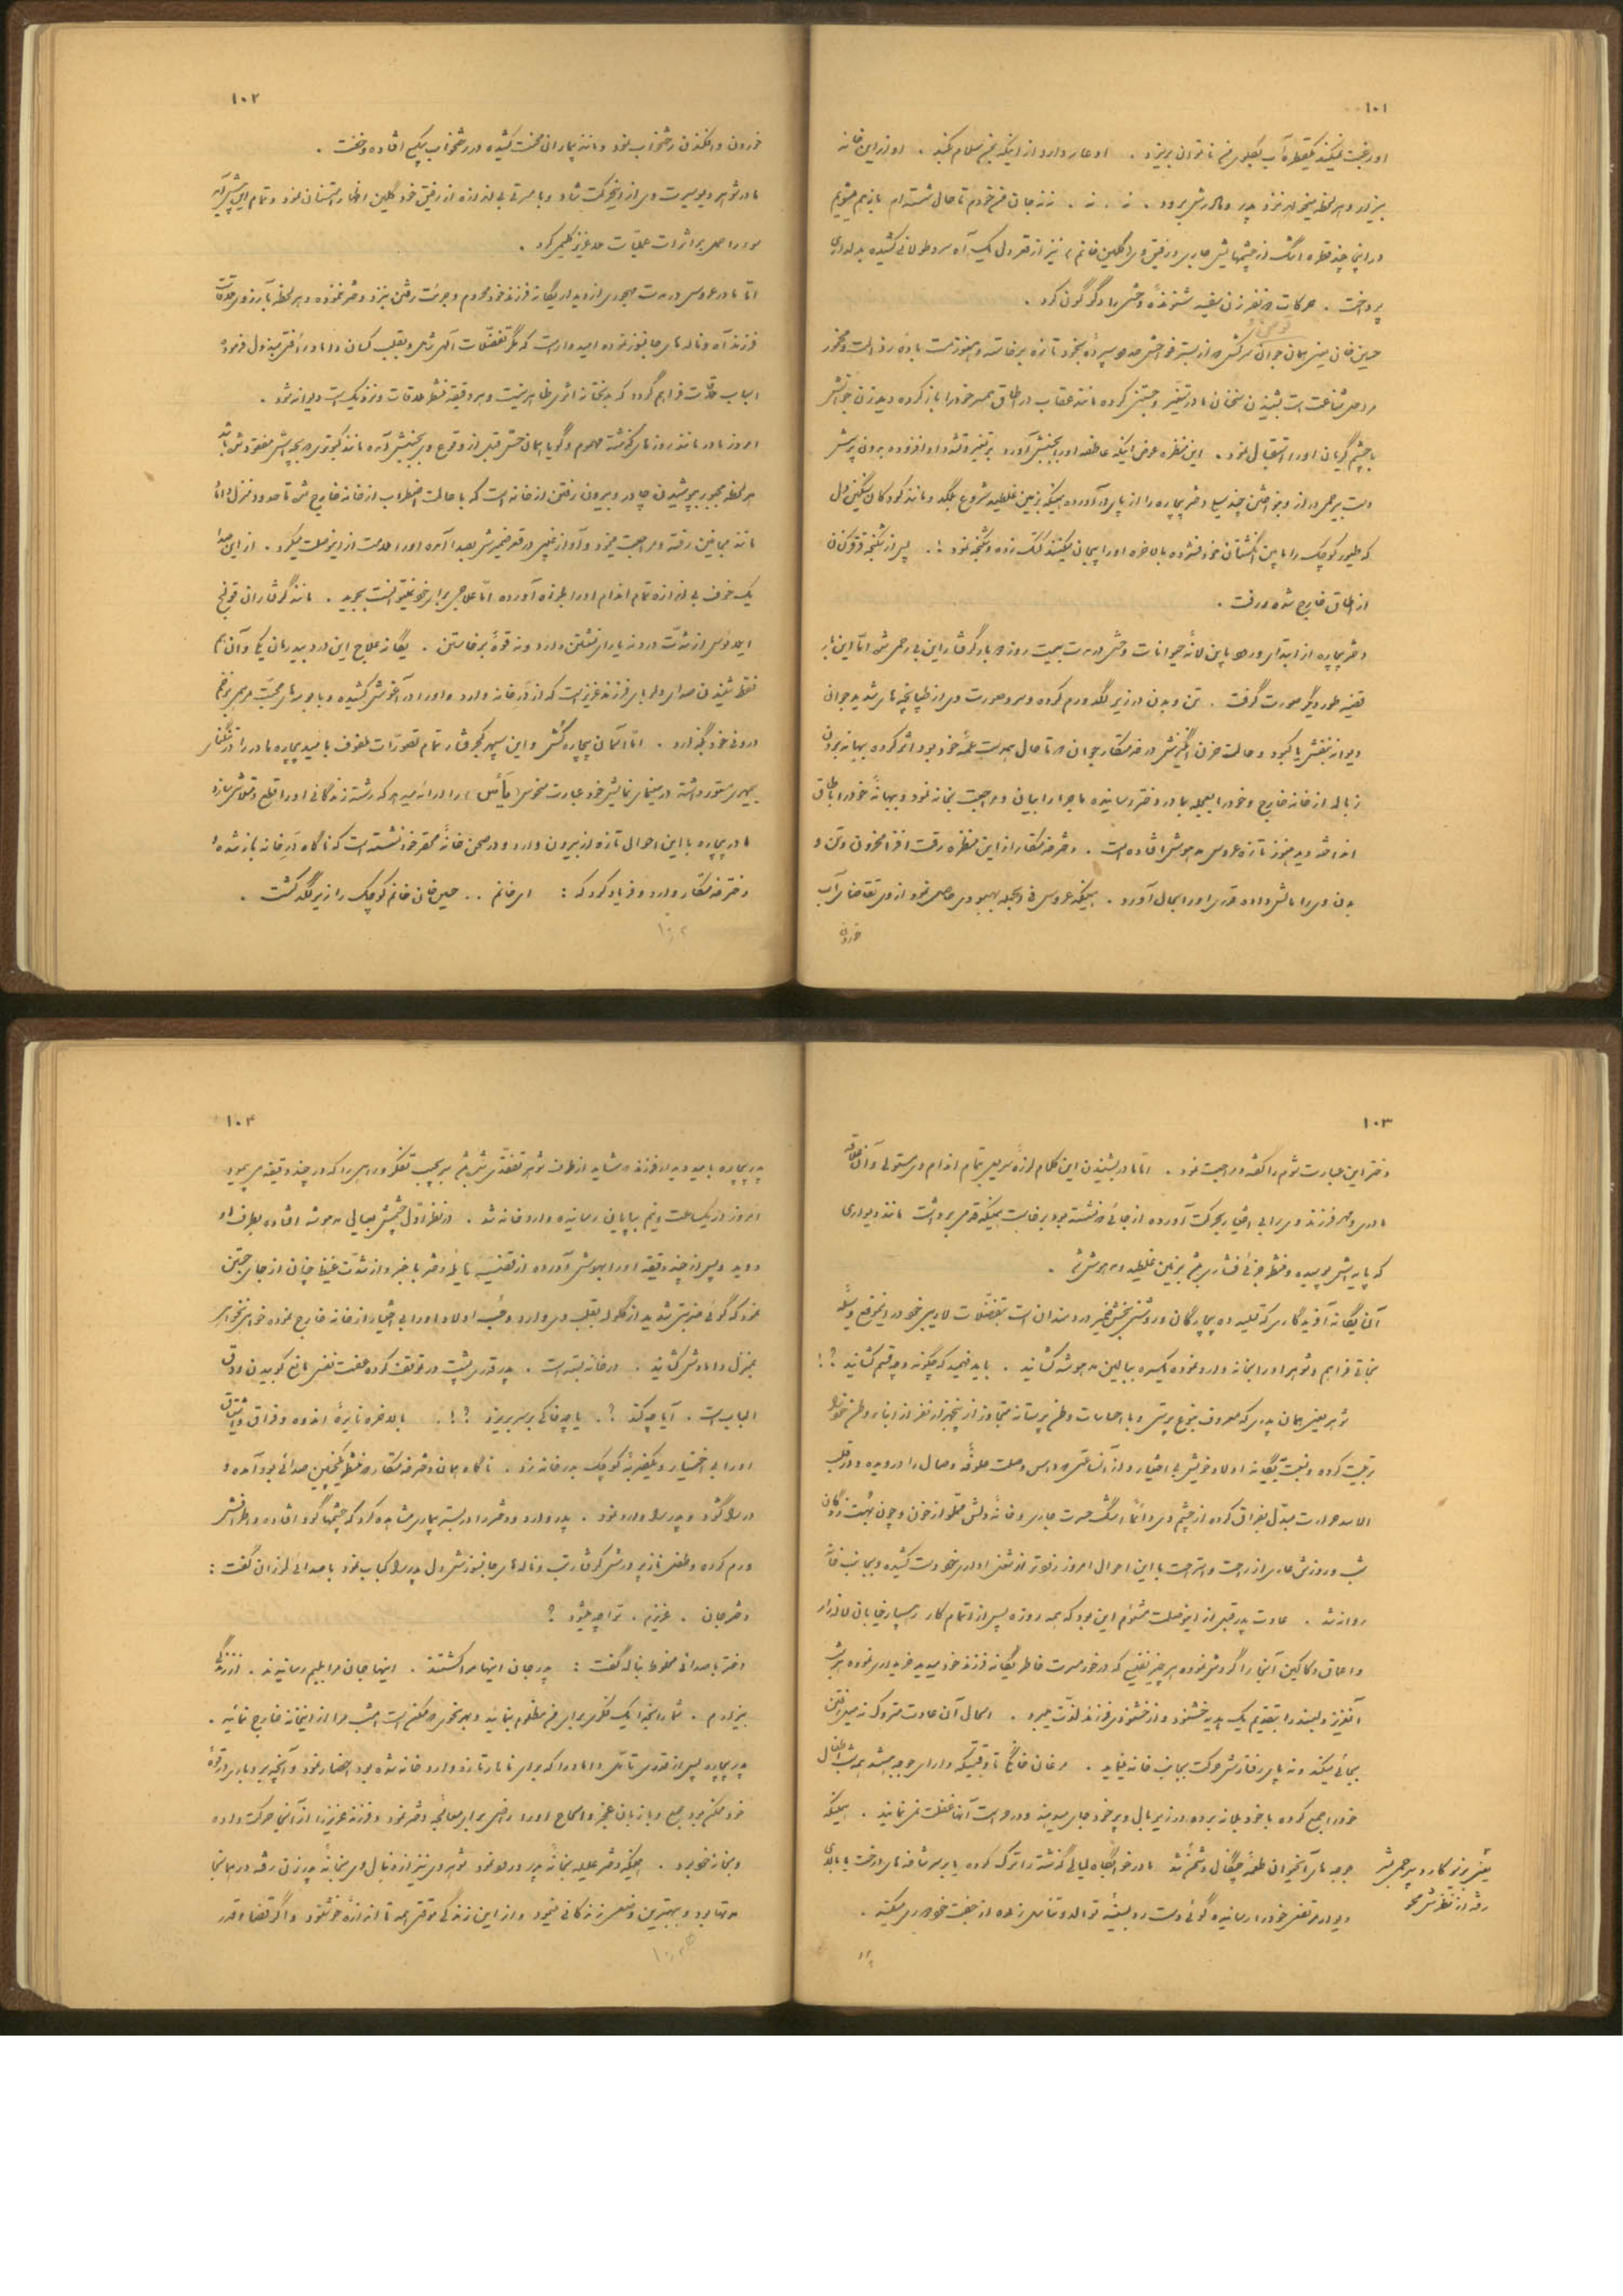 ۱۰۱
او رغبت نمیکند یکقطره آب بگلوی من ناتوان بریزد . او عار دارد از اینکه بمن سلام کند . او از این خانه
بیزار و هر لحظه میخواهد نزد پدر و مادرش برود . نه . نه . ننه جان من خودم تا حال شسته‌ام باز هم میشویم
در این چند قطره اشگ از چشمهایش جاری و رفیق وی (گلین خانم) نیز از قعر دل یک آه سرد طولانی کشیده بدلداری
پرداخت . حرکات دو نفر زن سفیه شنونده وحشی را دگرگون کرد .
حسین خان یعنی همان جوان سرکش که از بستر تازه برخاسته و هنوز مست باده رذالت و مخمور
است بشنیدن سخنان مادر تغییر کرده مانند عقاب در اطاق همسر خود را باز کرده دید زن جوانش
با چشم گریان او را استقبال نمود . این منظره عوض اینکه عاطفه او را بجنبش آورد بر تغیر و تشدد او افزوده بدون پرسش
دست بیرحمی دراز و بنواختن چند سیلی دختر بیچاره را از پای در آورده همینکه بزمین غلطید شروع بلگد و مانند کودکان سنگین دل
که طیور کوچک را مابین انگشتان خود فشرده بالاخره او را بیجان میکنند کتک زده و شکنجه نمود !. پس از شکنجه
از اطاق خارج شده و رفت .
دختر بیچاره از ابتدای ورود باین لانه حیوانات وحشی در مدت بیست روز دو بار گرفتار این بیرحمی شد امّا این بار
قضیه طور دیگر صورت گرفت . تن و بدن در زیر لگد ورم کرده و سر و صورت وی از طپانچه‌های شدید جوان
دیوانه بنفش یا کبود و حالت حزن انگیزش در خدمتکار جوان که تا حال همدست عمّه خود بود اثر کرده بهانه بردن
زباله از خانه خارج و خود را بعجله بمادر دختر رسانیده ماجرا را بیان و مراجعت بخانه نمود و بهانه خود را باطاق
انداخته دید هنوز تازه عروس مدهوش افتاده است . دختر خدمتکار از این منظره رقت افزا محزون و تن و
بدن وی را مالش داده قدری او را بحال آورد . همینکه عروس فی الجمله بهبودی حاصل نمود از وی تقاضای آب
خوردن
۱۰۲
خوردن و افکندن رختخواب نمود و مانند بیماران سخت کشیده در رختخواب یکی افتاده و خفت .
مادر شوهر دیو سیرت وی از این حرکت شاد و با مسرتی بی اندازه از رفیق خود گلین اظهار امتنان نمود و تمام این پیش آمد
سوء را حمل بر اثرات عملیّات ملا عزیز کلیمی کرد .
امّا مادر عروس در مدت مهجوری از دیدار یگانه فرزند خود محروم و جرئت رفتن بنزد دختر ننموده و هر لحظه بآرزوی ملاقات
فرزند آه و ناله‌های جانسوز نموده امیدوار است که مگر تفضّلات الهی بقلب کسان داماد رأفتی مبذول فرموده
اسباب ملاقات فراهم گردد که بدبختانه اثری ظاهر نیست و هر دقیقه منتظر ملاقات و نزدیک است دیوانه شود .
امروز مادر مانند روزهای گذشته مهموم و گویا همان حسّ قبل از وقوع وی بجنبش آمده مانند کبوتری که بچه اش مفقود شده باشد
هر لحظه مجبور بپوشیدن چادر و بیرون رفتن از خانه است که با حالت اضطراب از خانه خارج شده تا حدود منزل داماد
مانند مجانین رفته و مراجعت مینمود و آواز غیبی در قعر ضمیرش بصدا آمده او را ملامت از این وصلت میکرد . از این صدا
یک خوف بی اندازه تمام اندام او را بلرزه آورده امّا علاجی برای خود نمیتوانست بجوید . مانند گرفتاران قولنج
ایلاوس از شدّت درد نه یارای نشستن دارد و نه قوّه برخاستن . یگانه علاج این درد بیدرمان یکی و آن هم
فقط شنیدن صدای دلربای فرزند عزیز است که از در خانه وارد و او را در آغوش کشیده و با بوسه‌های محبّت مرهمی بزخم
درونی خود بگذارد . امّا آسمان بیچاره کش و این سپهر کجرفتار تمام تصوّرات ملفوف بامید بیچاره مادر را
بیمهری مستور داشته در سینمای نمایش خود عبارت منحوس (یأس) را ارائه میدهد که رشته زندگانی او را قطع و متلاشی سازد
مادر بیچاره با این احوال تازه از بیرون وارد و در صحن خانه محقر خود نشسته است که ناگاه درِ خانه باز شده و
دختر خدمتکار وارد و فریاد کرد که : ای خانم .. حسین خان خانم کوچک را زیر لگد کشت .
۱۰۲
۱۰۳
دختر این عبارت شوم را گفته و مراجعت نمود . امّا مادر بشنیدن این کلام لرزه سریعی بتمام اندام وی مستولی و آن علاقه
مادری و مهر فرزندی وی را بی اختیار بحرکت آورده از جائی که نشسته بود برخاست همینکه قدمی برداشت مانند دیواری
که پایه اش پوسیده و منتظر جزئی فشار باشد بزمین غلطیده و مدهوش شد .
آن یگانه آفریدگاری که تکیه ده بیچارگان و روشنی بخش ضمیر دردمندان است بتفضّلات لاریبی خود در این موقع وسیله
نجاتی فراهم و شوهر او را بخانه وارد نموده یکسره ببالین مدهوشه کشانید . باید فهمید که چگونه و چه قسم کشانید ؟!
شوهر یعنی همان پدری که معروف بنوع پرستی و با احساسات وطن پرستانه متجاوز از پنجهزار نفر از ابناء وطن خود را
تربیت کرده و نسبت بیگانه اولاد خویش بی اختیار و از آنساعتی که داس وصلت علوفه وصال را درویده و در قلب
الاسد حوادث مبدّل بفراق کرده از چشم وی دائماً اشگ حسرت جاری و خانه دلش مملو از خون و چون بهت زدگان
شب و روزش عاری از راحت و استراحت با این احوال امروز زودتر از شغل اداری خود دست کشیده و بجانب خانه
روانه شد . عادت پدر قبل از این وصلت مشئوم این بود که همه روزه پس از اتمام کار رهسپار خیابان لاله‌زار
و اعماق دکاکین آنجا را گردش نموده هر چیز نفیسی که در خور مسرت خاطر یگانه فرزند خود میدید خریداری نموده هر شب
آنعزیز دلبند را بتقدیم یک هدیه خشنود و از خشنودی فرزند لذّت میبرد . الحال آن عادت متروک نه میل رفتن
بجائی میکند و نه پای رفتارش حرکت بجانب خانه مینماید . مرغان خانگی تا وقتیکه دارای جوجه میباشند همه شب اطفال
خود را جمع کرده با خود بلانه برده در زیر بال و پر خود جای میدهند و در حراست آنها غفلت نمی نمایند . همینکه
جوجه‌های آنحیوان طعمه چنگال دشمن شد مادر خوابگاه لیالی گذشته را ترک کرده یا بر سر شاخه‌های درخت یا بالای
دیوار مرتفعی خود را رسانیده گوئی دست رد بسینه توالد و تناسل زده از جفت خود دوری میکند .
یعنی بزیر کارد بیرحم بشر
رفته از نظرش محو
۱۰۴
پدر بیچاره بامید دید فرزند که شاید از طرف شوهر تفقدی شده باشد بجیب تفکر و راهی را که در چند دقیقه می پیمود
امروز در یک ساعت و نیم بپایان رسانیده وارد خانه شد . در نظر اوّل چشمش بعیالی مدهوشه افتاده بطرف او
دوید و پس از چند دقیقه او را بهوش آورده از قضیّه هایله دختر باخبر و از شدّت غیظ چنان از جای جستن
نمود که گوئی ضربتی شدید از گلوله بقلب وی وارد و حُبّ اولاد او را بی اختیار از خانه خارج نموده خواهی نخواهی
بمنزل دامادش کشانید . در خانه بسته است . پدر قدری پشت در توقف کرده عفت نفس مانع کوبیدن و دقّ
الباب است . آیا چه کند ؟. یا چه خاکی بر سر بریزد ؟!. بالاخره نایره اندوه و فراق و اشتیاق
او را بی اختیار و یکضربه کوچک بدر خانه زد . ناگاه همان دختر خدمتکار که منتظر یکچنین صدائی بود آمده و
در را گشود و پدر را وارد نمود . پدر وارد و دختر را در بستر بیماری مشاهده کرد که چشمها گود افتاده و اطرافش
ورم کرده و طفل نازپرورش گرفتار تب و ناله‌های جانسوزش دل پدر را کباب نمود با صدائی لرزان گفت :
دختر جان . عزیزم . ترا چه میشود ؟
دختر با صدائی مخلوط بناله گفت : پدر جان اینها مرا کشتند . اینها جان مرا بلبم رسانیدند . از زندگی
بیزارم . شما را بخدا یک فکری برای من مظلوم بنمائید و بهر نحوی که ممکن است امشب مرا از اینخانه خارج نمائید .
پدر بیچاره پس از قدری تأمل داماد را که برای ناهار تازه وارد خانه شده بود احضار نمود و آنچه پند و اندرز در قوّه
خود ممکن بود جمع و با زبان عجز و الحاح او را راضی برای معالجه دختر نمود و فرزند عزیز را از آنجا حرکت داده
و بخانه خود برد . همینکه دختر علیله بخانه پدر ورود نمود شوهر وی نیز از دنبال وی بخانه پدر زن رفته در همانجا
مدتها بود و بهترین وضعی زندگانی مینمود و از این زندگی موقتی همه تا اندازه خوشنود و اگر قضا و قدر